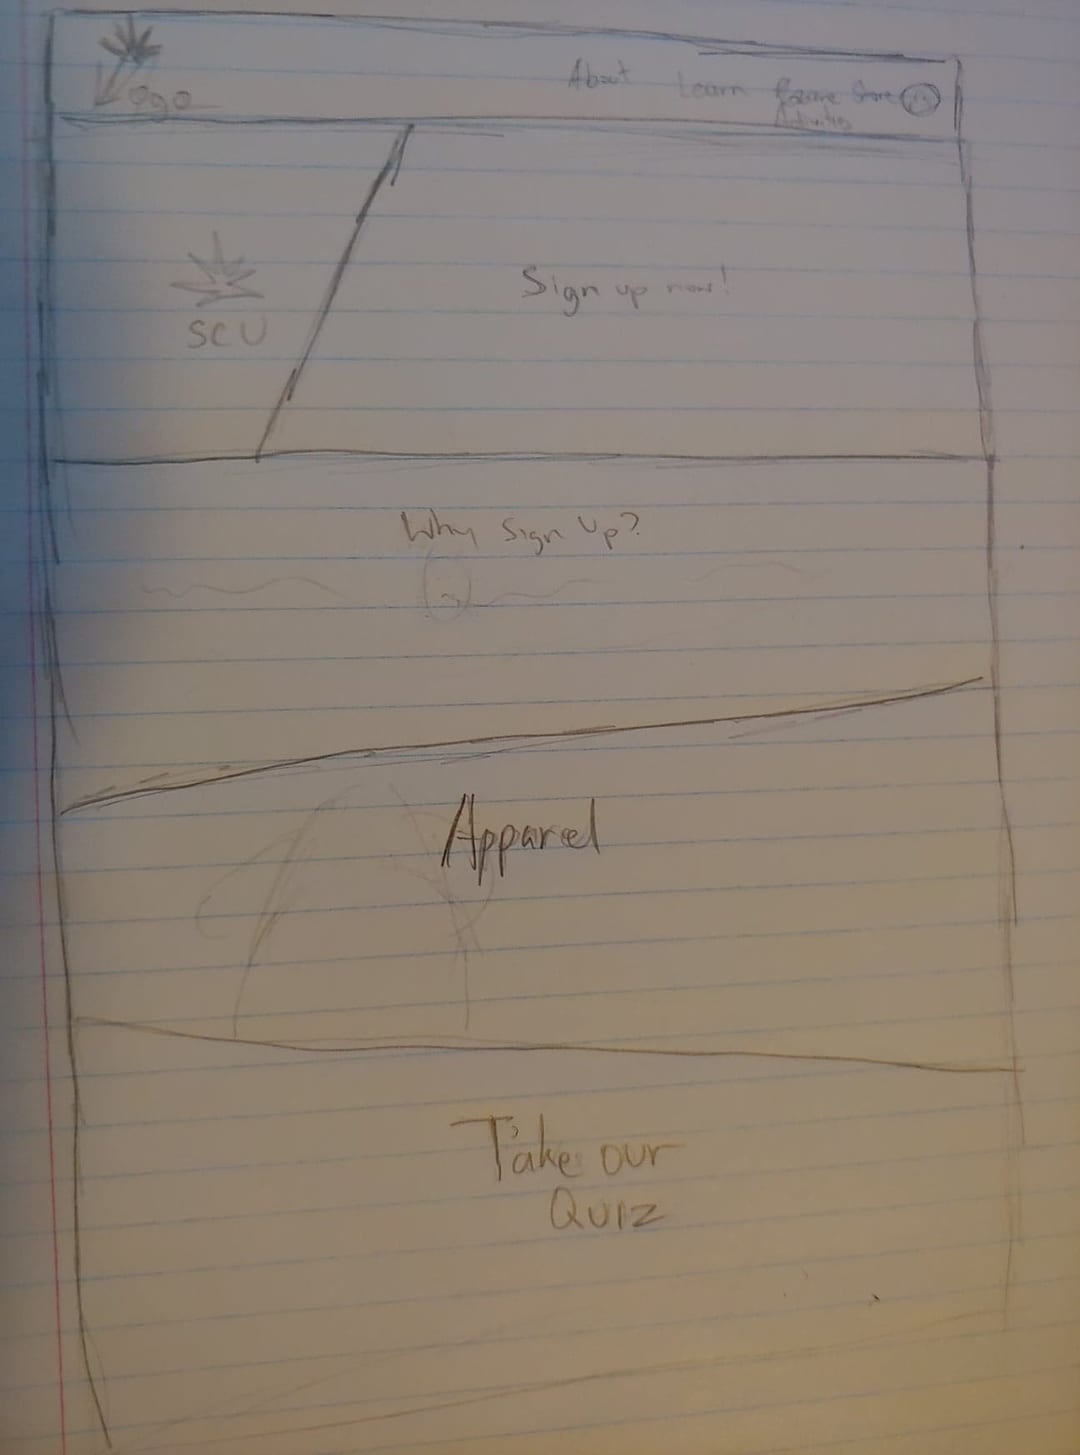 Logo
About Learn Store
Activities
SCU
Sign up now!
Why Sign Up?
Apparel
Take our
Quiz